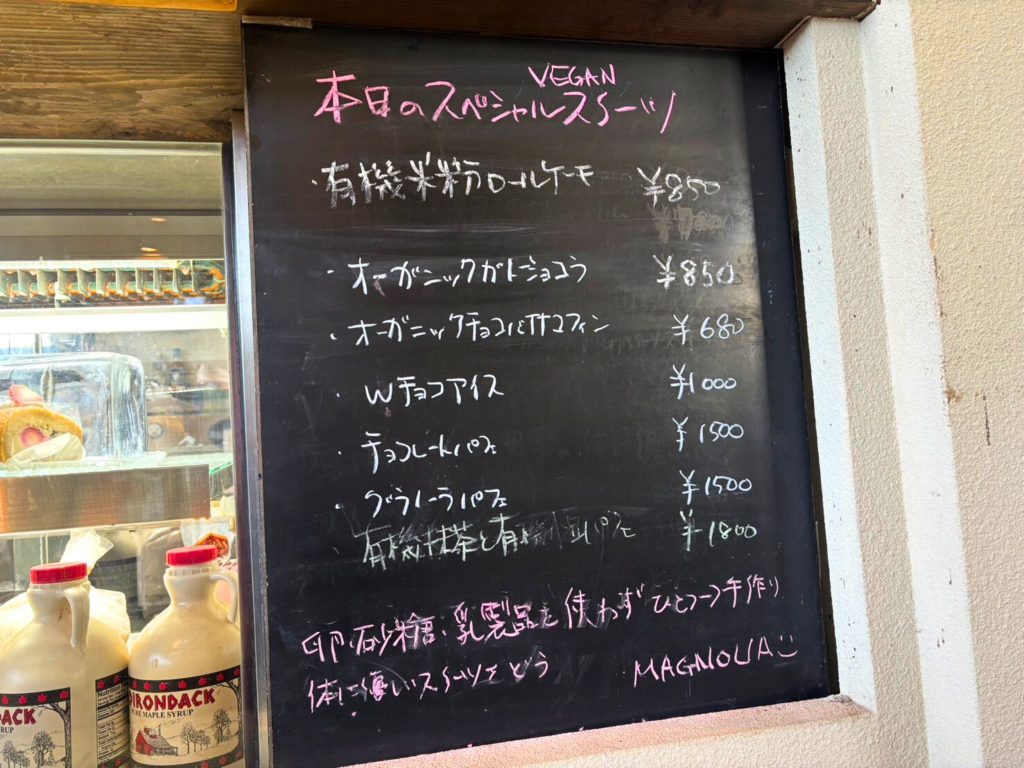 VEGAN
本日のスペシャルスイーツ
・有機米粉ロールケーキ ¥850
・オーガニックガトーショコラ ¥850
・オーガニックチョコバナナマフィン ¥680
・Wチョコアイス ¥1000
・チョコレートパフェ ¥1500
・グラノーラパフェ ¥1500
有機抹茶と有機 パフェ ¥1800
卵・砂糖・乳製品を使わずひとつ一つ手作り
体に優しいスイーツをどう
MAGNOLIA
ADIRONDACK
PURE MAPLE SYRUP